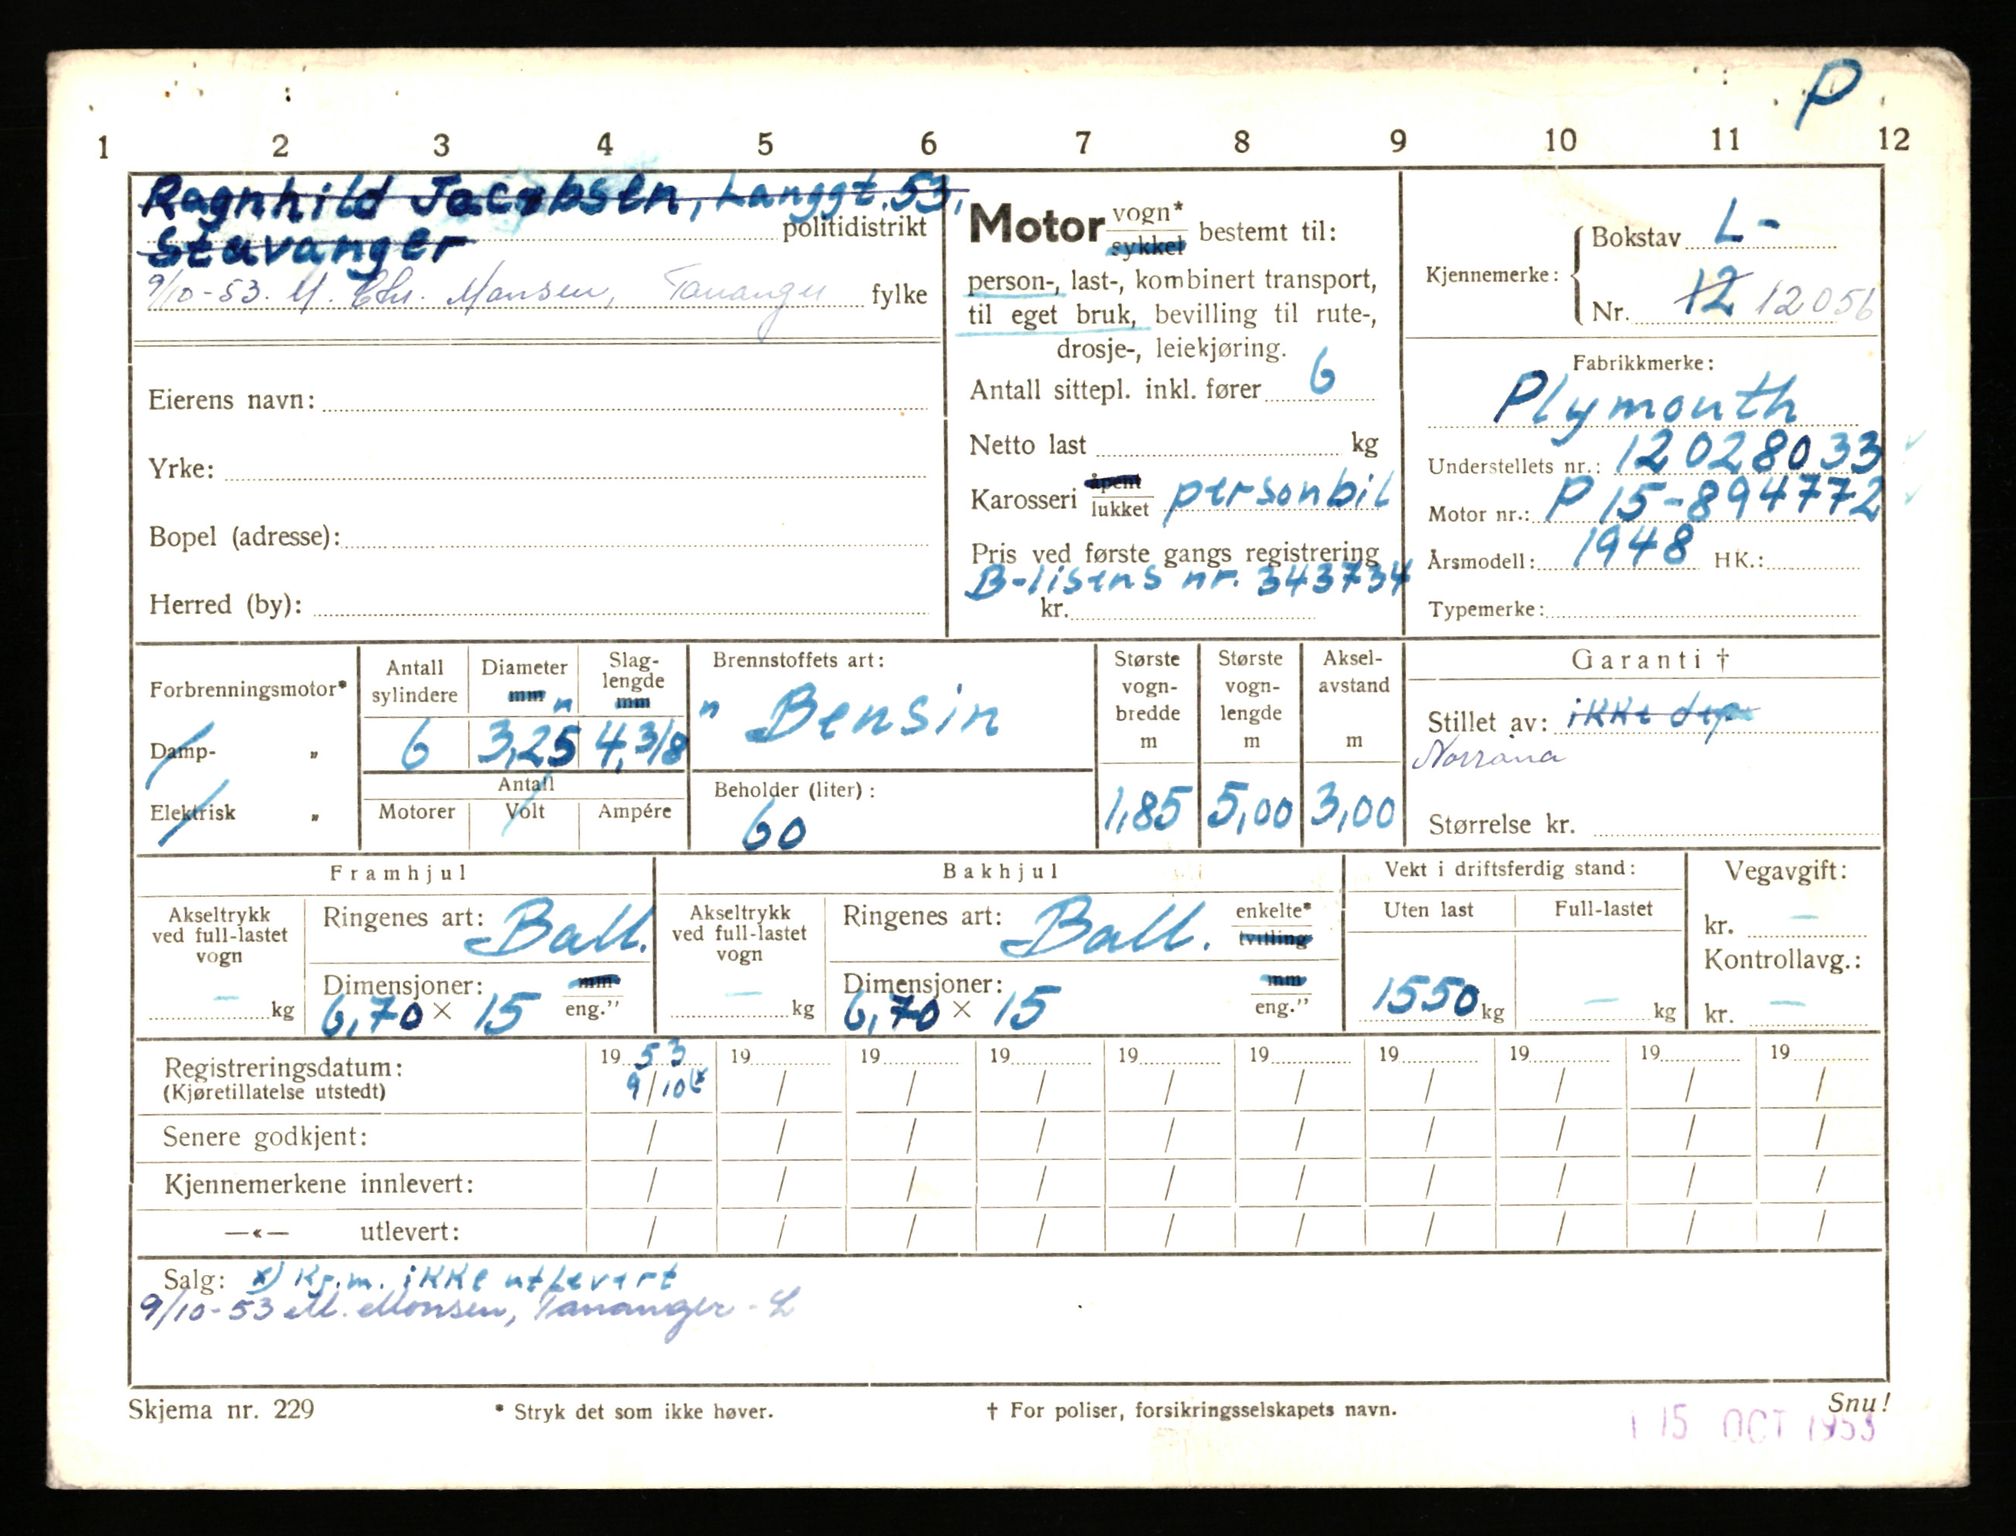 P
1 2 3 4 5 6 7 8 9 10 11 12
Ragnhild Jacobsen, Langgt. 53,
politidistrikt
Stavanger
9/10-53. M. Chr. Monsen, Tananger fylke
Eierens navn:
Yrke:
Bopel (adresse):
Herred (by):
Motor vogn* sykkel bestemt til:
person-, last-, kombinert transport,
til eget bruk, bevilling til rute-,
drosje-, leiekjøring.
Antall sittepl. inkl. fører 6
Netto last kg
Karosseri åpent lukket personbil
Pris ved første gangs registrering
B-lisens nr. 343734
kr.
Kjennemerke: Bokstav L-
Nr. 12 12056
Fabrikkmerke:
Plymouth
Understellets nr.: 12028033
Motor nr.: P 15-894772
Årsmodell: 1948 HK.:
Typemerke:
Forbrenningsmotor*
Damp- „
Elektrisk „
Antall sylindere
6
Diameter mm "
3,25
Slag-lengde mm "
4,3/8
Antall
Motorer Volt Ampére
Brennstoffets art:
Bensin
Beholder (liter):
60
Største vogn-bredde m
1,85
Største vogn-lengde m
5,00
Aksel-avstand m
3,00
Garanti †
Stillet av: ikke dep
Norrøna
Størrelse kr.
Framhjul
Akseltrykk ved full-lastet vogn
– kg
Ringenes art: Ball.
Dimensjoner: mm
6,70 × 15 eng.”
Bakhjul
Akseltrykk ved full-lastet vogn
– kg
Ringenes art: Ball. enkelte* tvilling
Dimensjoner: mm
6,70 × 15 eng.”
Vekt i driftsferdig stand:
Uten last Full-lastet
1550 kg – kg
Vegavgift:
kr. –
Kontrollavg.:
kr. –
Registreringsdatum: 19 53 19 19 19 19 19 19 19 19 19
(Kjøretillatelse utstedt) 9/10 x / / / / / / / / /
Senere godkjent: / / / / / / / / / /
Kjennemerkene innlevert: / / / / / / / / / /
—«— utlevert: / / / / / / / / / /
Salg: x) Kj.m. ikke utlevert
9/10-53 M. Monsen, Tananger - L
Skjema nr. 229 * Stryk det som ikke høver. † For poliser, forsikringsselskapets navn. Snu!
15 OCT 1953